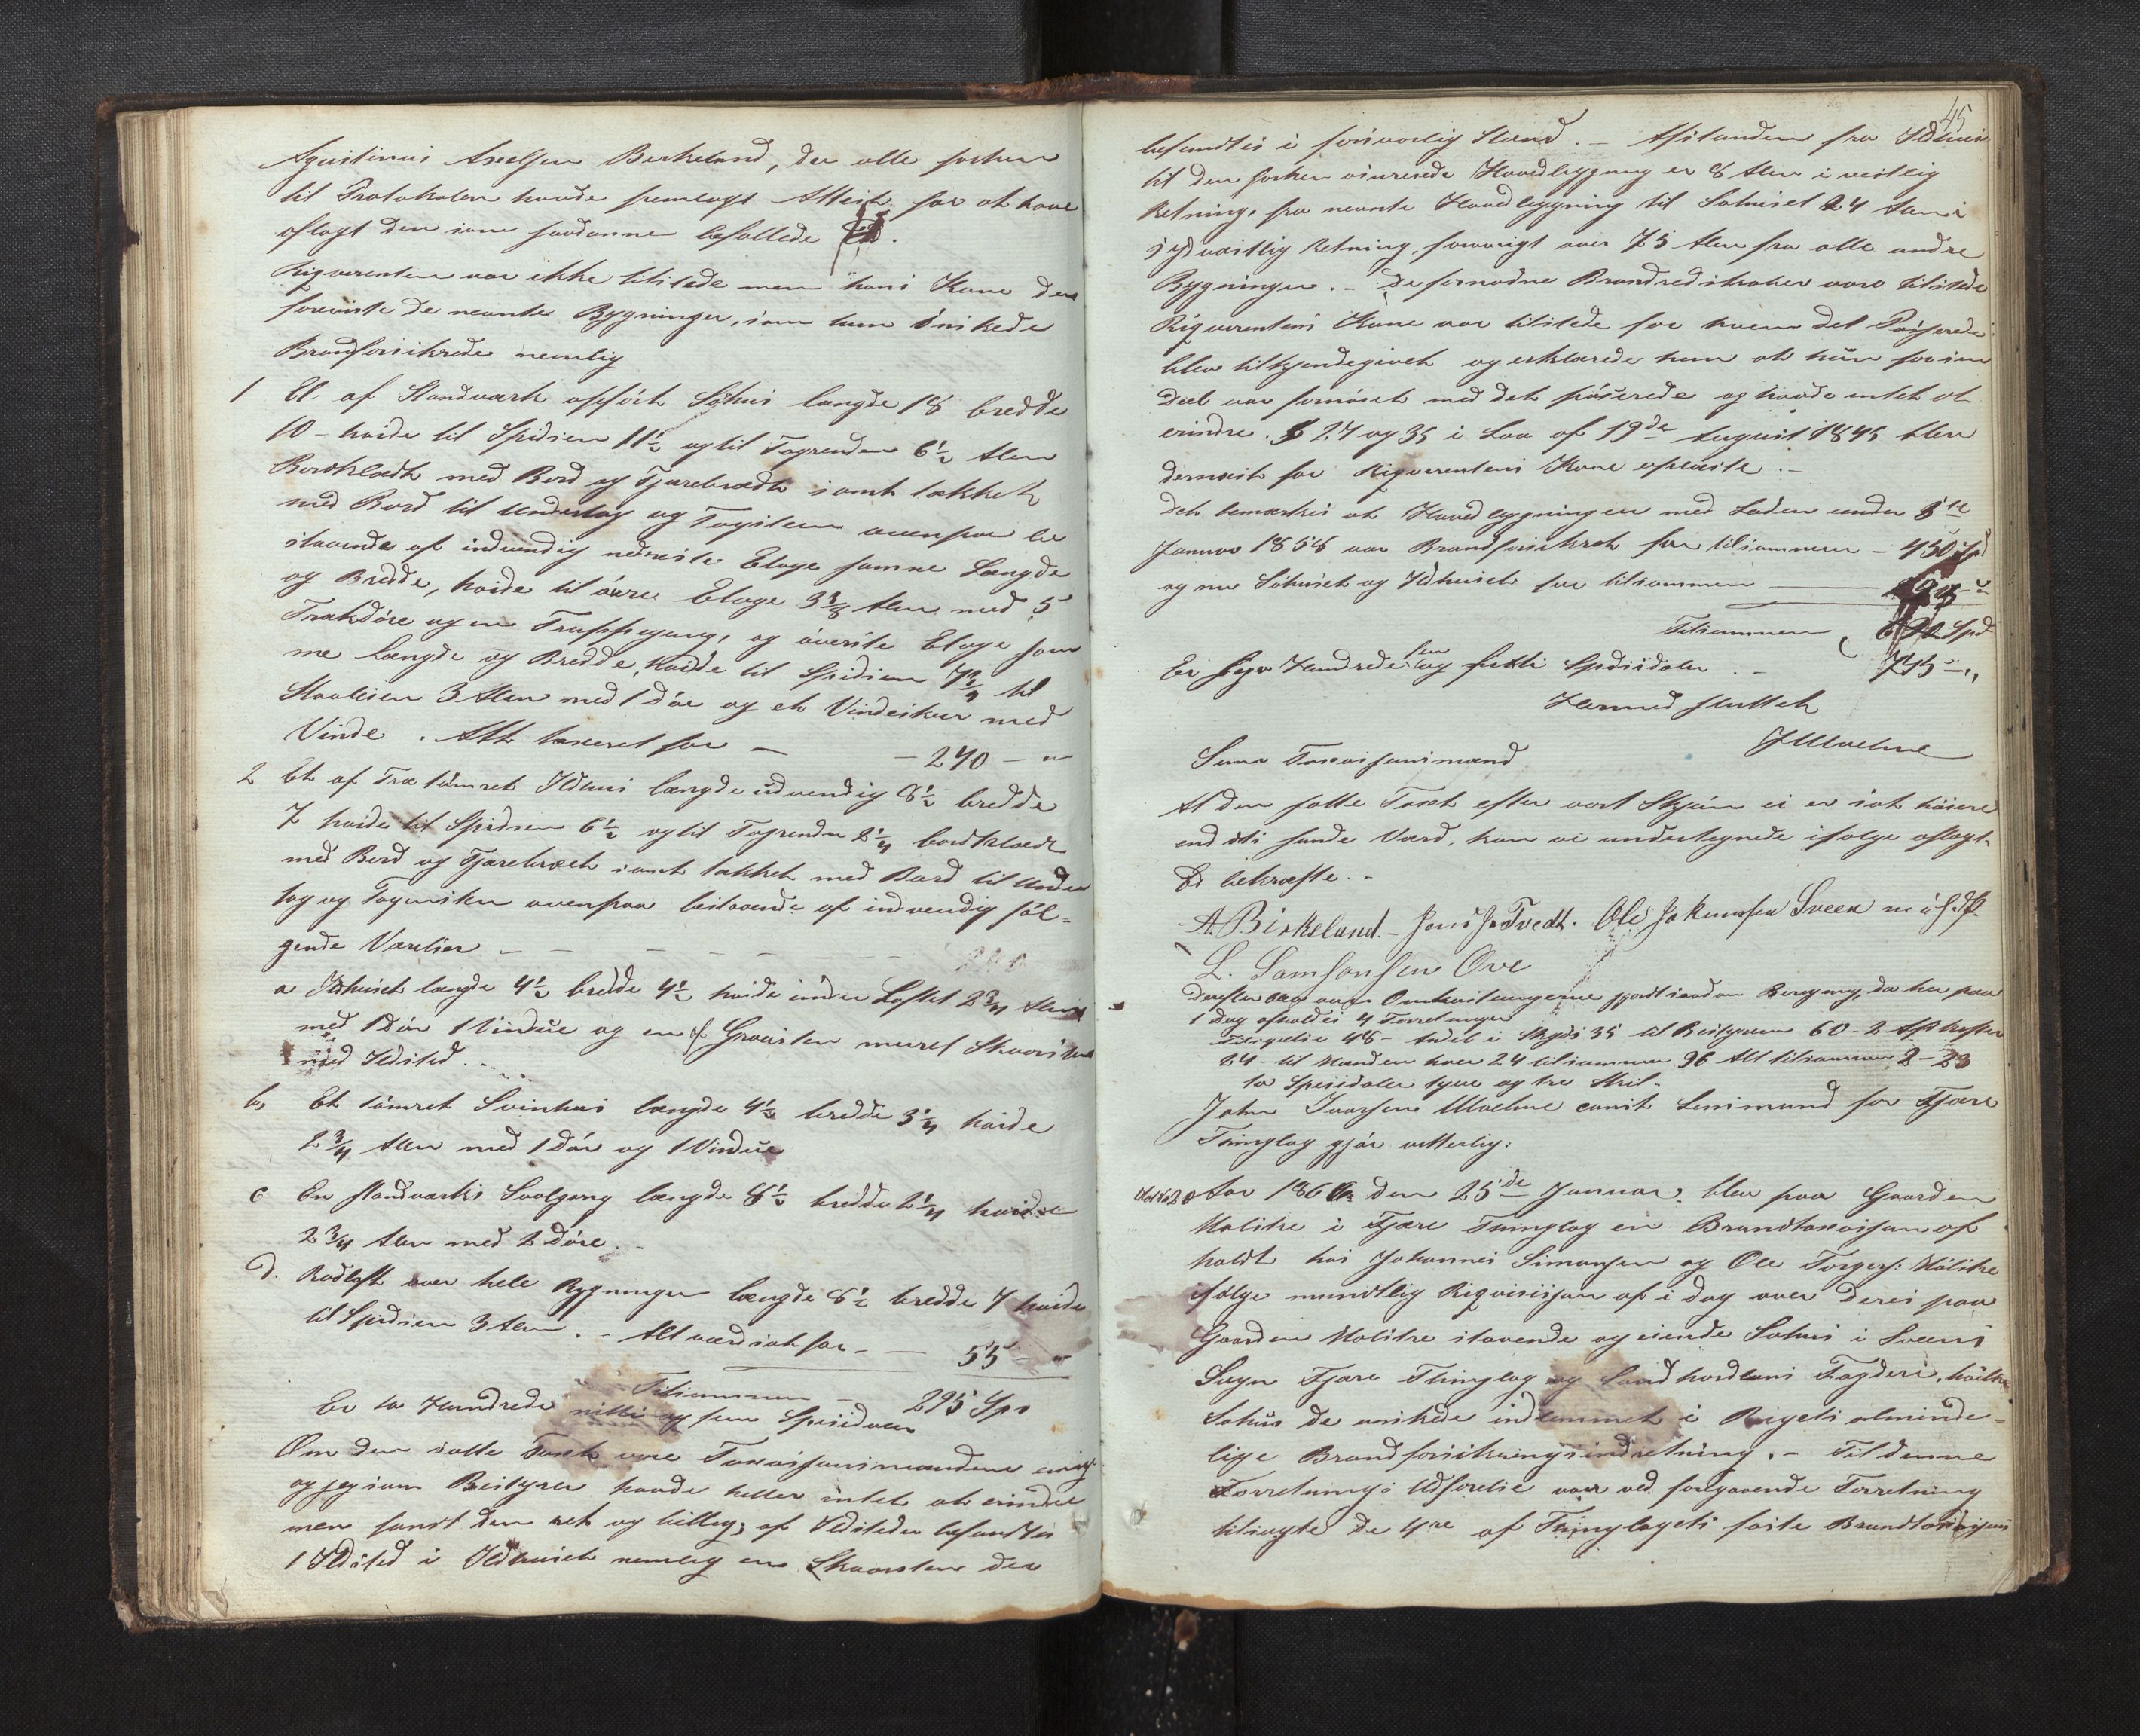 Agustinus Axelsen Berkeland, der alle forhen
til Protokolen havde fremlagt Attest for at have
aflagt den som saadanne befallede Ed.
Riqvirenten var ikke tilstede men hans Kone der
foreviste de nevnte Bygninger, som hun önskede
Brandforsikrede nemlig
1 Et af Standværk opfört Söhus længde 18 bredde
10 - høide til Spidsen 11½ og til Tagrenden 6½ Alen
Bordklædt med Bord og Tjærebrædt samt tækket
med Bord til Underlag og Tagsteen ovenpaa be
staaende af indvendig nederste Etage samme Længde
og Bredde, høide til övre Etage 3⅜ Alen med 5
Trækdöre og en Trappegang, og överste Etage sam
me længde og Bredde, høide til Spidsen 7¾ til
Stavleien 3 Alen med 1 Dör og et Vindeskur med
Vinde. Alt taxeret for — – 240 – "
2 Et af Træ tömret Ildhus længde udvendig 8½ bredde
7 høide til Spidsen 6½ og til Tagrenden 2¼ bordklædt
med Bord og Tjærebræet samt tækket med Bord til Under
lag og Tagsteen ovenpaa bestaaende af indvendig föl-
gende Værelser –
a Ildhuset længde 4½ bredde 4½ høide under Loftet 2¾ Alen
med 1 Dör 1 Vindue og en af Graasten muret Skorsteen
med Ildsted.
b, Et tömret Svinhus længde 4½ bredde 3¼ høide
2¾ Alen med 1 Dör og 1 Vindue
c En standværks Svalgang længde 8½ bredde 2¼ høide
2¾ Alen med 2 Döre.
d. Rodloft over hele Bygningen længde 8½ bredde 7 høide
til Spidsen 3 Alen. – Alt værdsat for – — 55 – "
Tilsammen – 295 Spd
Er to Hundrede nitti og fem Spesidaler
Om den satte Taxt vare Taxasjonsmændene enig
og jeg som Bestyrer havde heller intet at erindre
men fandt den ret og billig; af Ildsteder befandtes
1 Ildsted i Ildhuset nemlig en Skorsten der
45
befandtes i forsvarlig Stand. – Afstanden fra Ildhuset
til den forhen assurerede Hovedbygning er 8 Alen i vestlig
Retning, fra nevnte Hovedbygning til Søhuset 24 Alen i
sydvæstlig Retning, forövrigt over 75 Alen fra alle andre
Bygninger. – De fornødne Brandredskaber vare tilstede
Riqvirentens Kone var tilstede for hvem det Passerede
blev tilkjendegivet og erklærede hun at hun for sin
Deel var fornöiet med det passerede og havde intet at
erindre. § 27 og 35 i Lov af 19de August 1845 blev
dernæst for Riqvirentens Kone oplæste. –
Det bemærkes at Hovedbygningen med Laden under 8de
Januar 1858 var Brandforsikret for tilsammen – 450 Spd
og nu Söhuset og Ildhuset for tilsammen — 295 – "
Tilsammen Spd
Er Syv Hundrede og firti fem Spesidaler. – 745 – "
Hermed sluttet
JMoelme
Som Taxasjonsmænd
At den satte Taxt efter vort Skjön ei er sat høiere
end dets sande Værd, kan vi undertegnede ifølge aflagt
Ed bekræfte. –
A. Birkeland. – Jens Jo Tvedt. Ole Jakumsen Sveen m i f. P.
L. Samsonsen Ove
Derefter blev Omkostningerne gjort saadan Beregning, da her paa
1 Dag afholdtes 4 Forretninger
48 – Andel i Skyds 35 til Bestyreren 60 – 2
24 – til Manden hver 24 tilsammen 96 Alt tilsammen 2 – 23
to Spesidaler tyve og tre Skil. –
John Ivarsen Moelme const. Lensmand for Fjære
Thinglag gjör vitterlig:
Aar 1860 den 25de Januar, blev paa Gaarden
Molstre i Fjære Thinglag en Brandtaxasjon af
holdt hos Johannes Simonsen og Ole Torgers: Molstre
ifølge mundtlig Riqvisisjon af i dag over deres paa
Gaarden Molstre staaende og eiende Søhus i Sveens
Sogn Fjære Thinglag og Søndhordlens Fogderi, hvilke
Søhus de önskede indlemmet i Rigets alminde-
lige Brandforsikringsindretning. – Til denne
Forretnings Udførelse var ved foregaaende Forretning
tilsagte de 4re af Thinglagets faste Brandtaxasjons